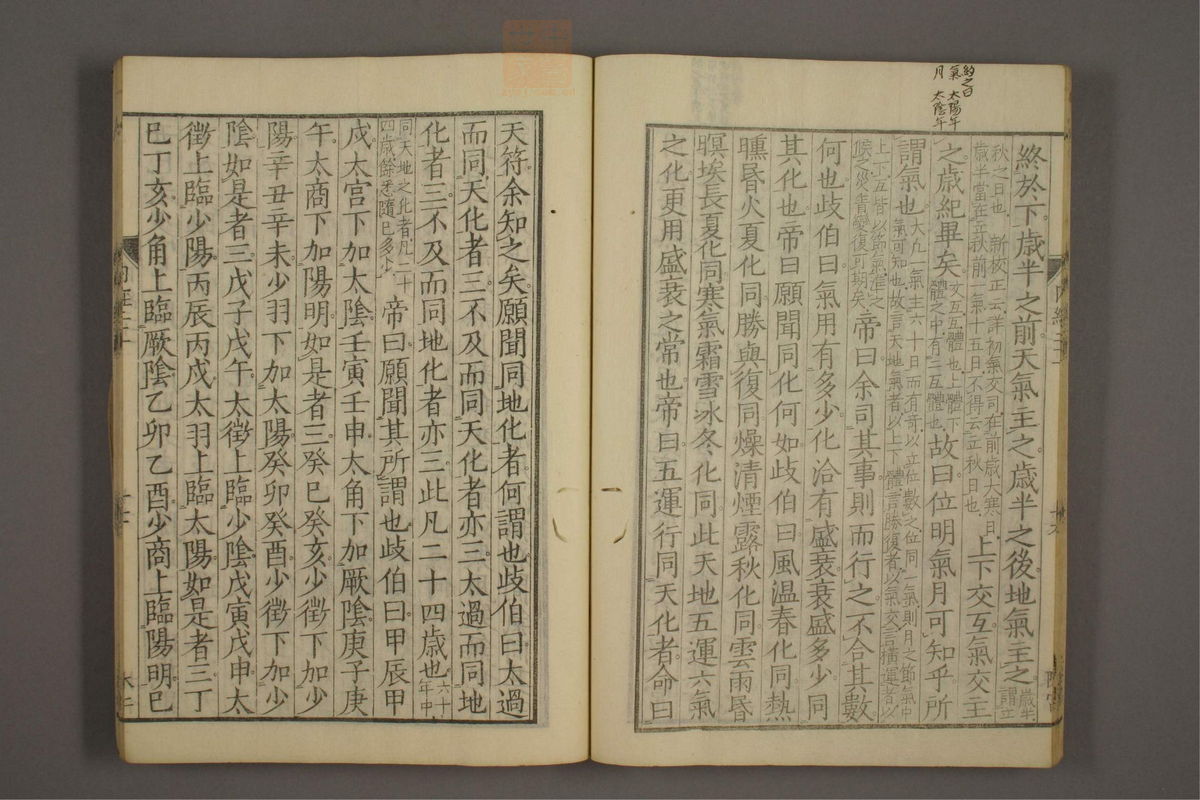 終於下歲半之前天氣主之歲半之後地氣主之歲半
謂立
秋之日也 新校正云詳初氣交司在前歲大寒日
歲半當在立秋前一氣十五日不得云立秋日也
上下交互氣交主
之歲紀畢矣
文互互體也上體下
體之中有二互體也
故曰位明氣月可知乎所
謂氣也
大凡一氣主六十日而有奇以立位數之位同一氣則月之節氣中
氣可知也故言天地氣者以上下體言勝復者以氣交言橫運者以
上下互皆以節氣准之
候之災眚變復可期矣
帝曰余司其事則而行之不合其數
何也歧伯曰氣用有多少化洽有盛衰衰盛多少同
其化也帝曰願聞同化何如歧伯曰風温春化同熱
曛昏火夏化同勝與復同燥清煙露秋化同雲雨昏
暝埃長夏化同寒氣霜雪冰冬化同此天地五運六氣
之化更用盛衰之常也帝曰五運行同天化者命曰
天符余知之矣願聞同地化者何謂也歧伯曰太過
而同天化者三不及而同天化者亦三太過而同地
化者三不及而同地化者亦三此凡二十四歲也
六十
年中
同天地之化者凡二十
四歲餘悉隨己多少
帝曰願聞其所謂也歧伯曰甲辰甲
戌太宮下加太陰壬寅壬申太角下加厥陰庚子庚
午太商下加陽明如是者三癸巳癸亥少徵下加少
陽辛丑辛未少羽下加太陽癸卯癸酉少徵下加少
陰如是者三戊子戊午太徵上臨少陰戊寅戊申太
徵上臨少陽丙辰丙戌太羽上臨太陽如是者三丁
巳丁亥少角上臨厥陰乙卯乙酉少商上臨陽明己